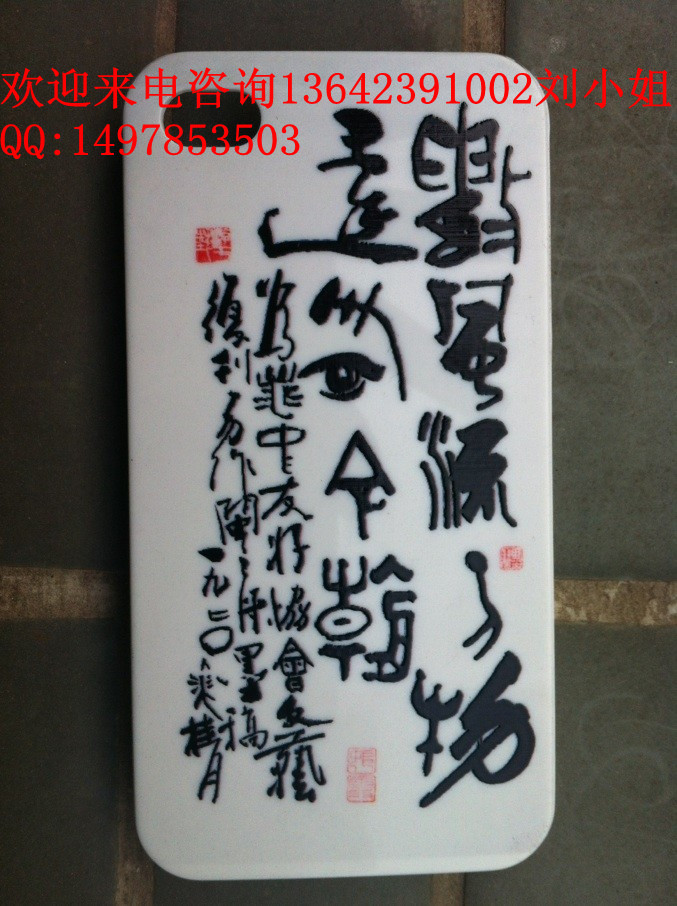 欢迎来电咨询13642391002刘小姐
QQ:1497853503
數風流人物
還看今朝
中友好協會文藝
復刊 作 墨稿
一九 桂月